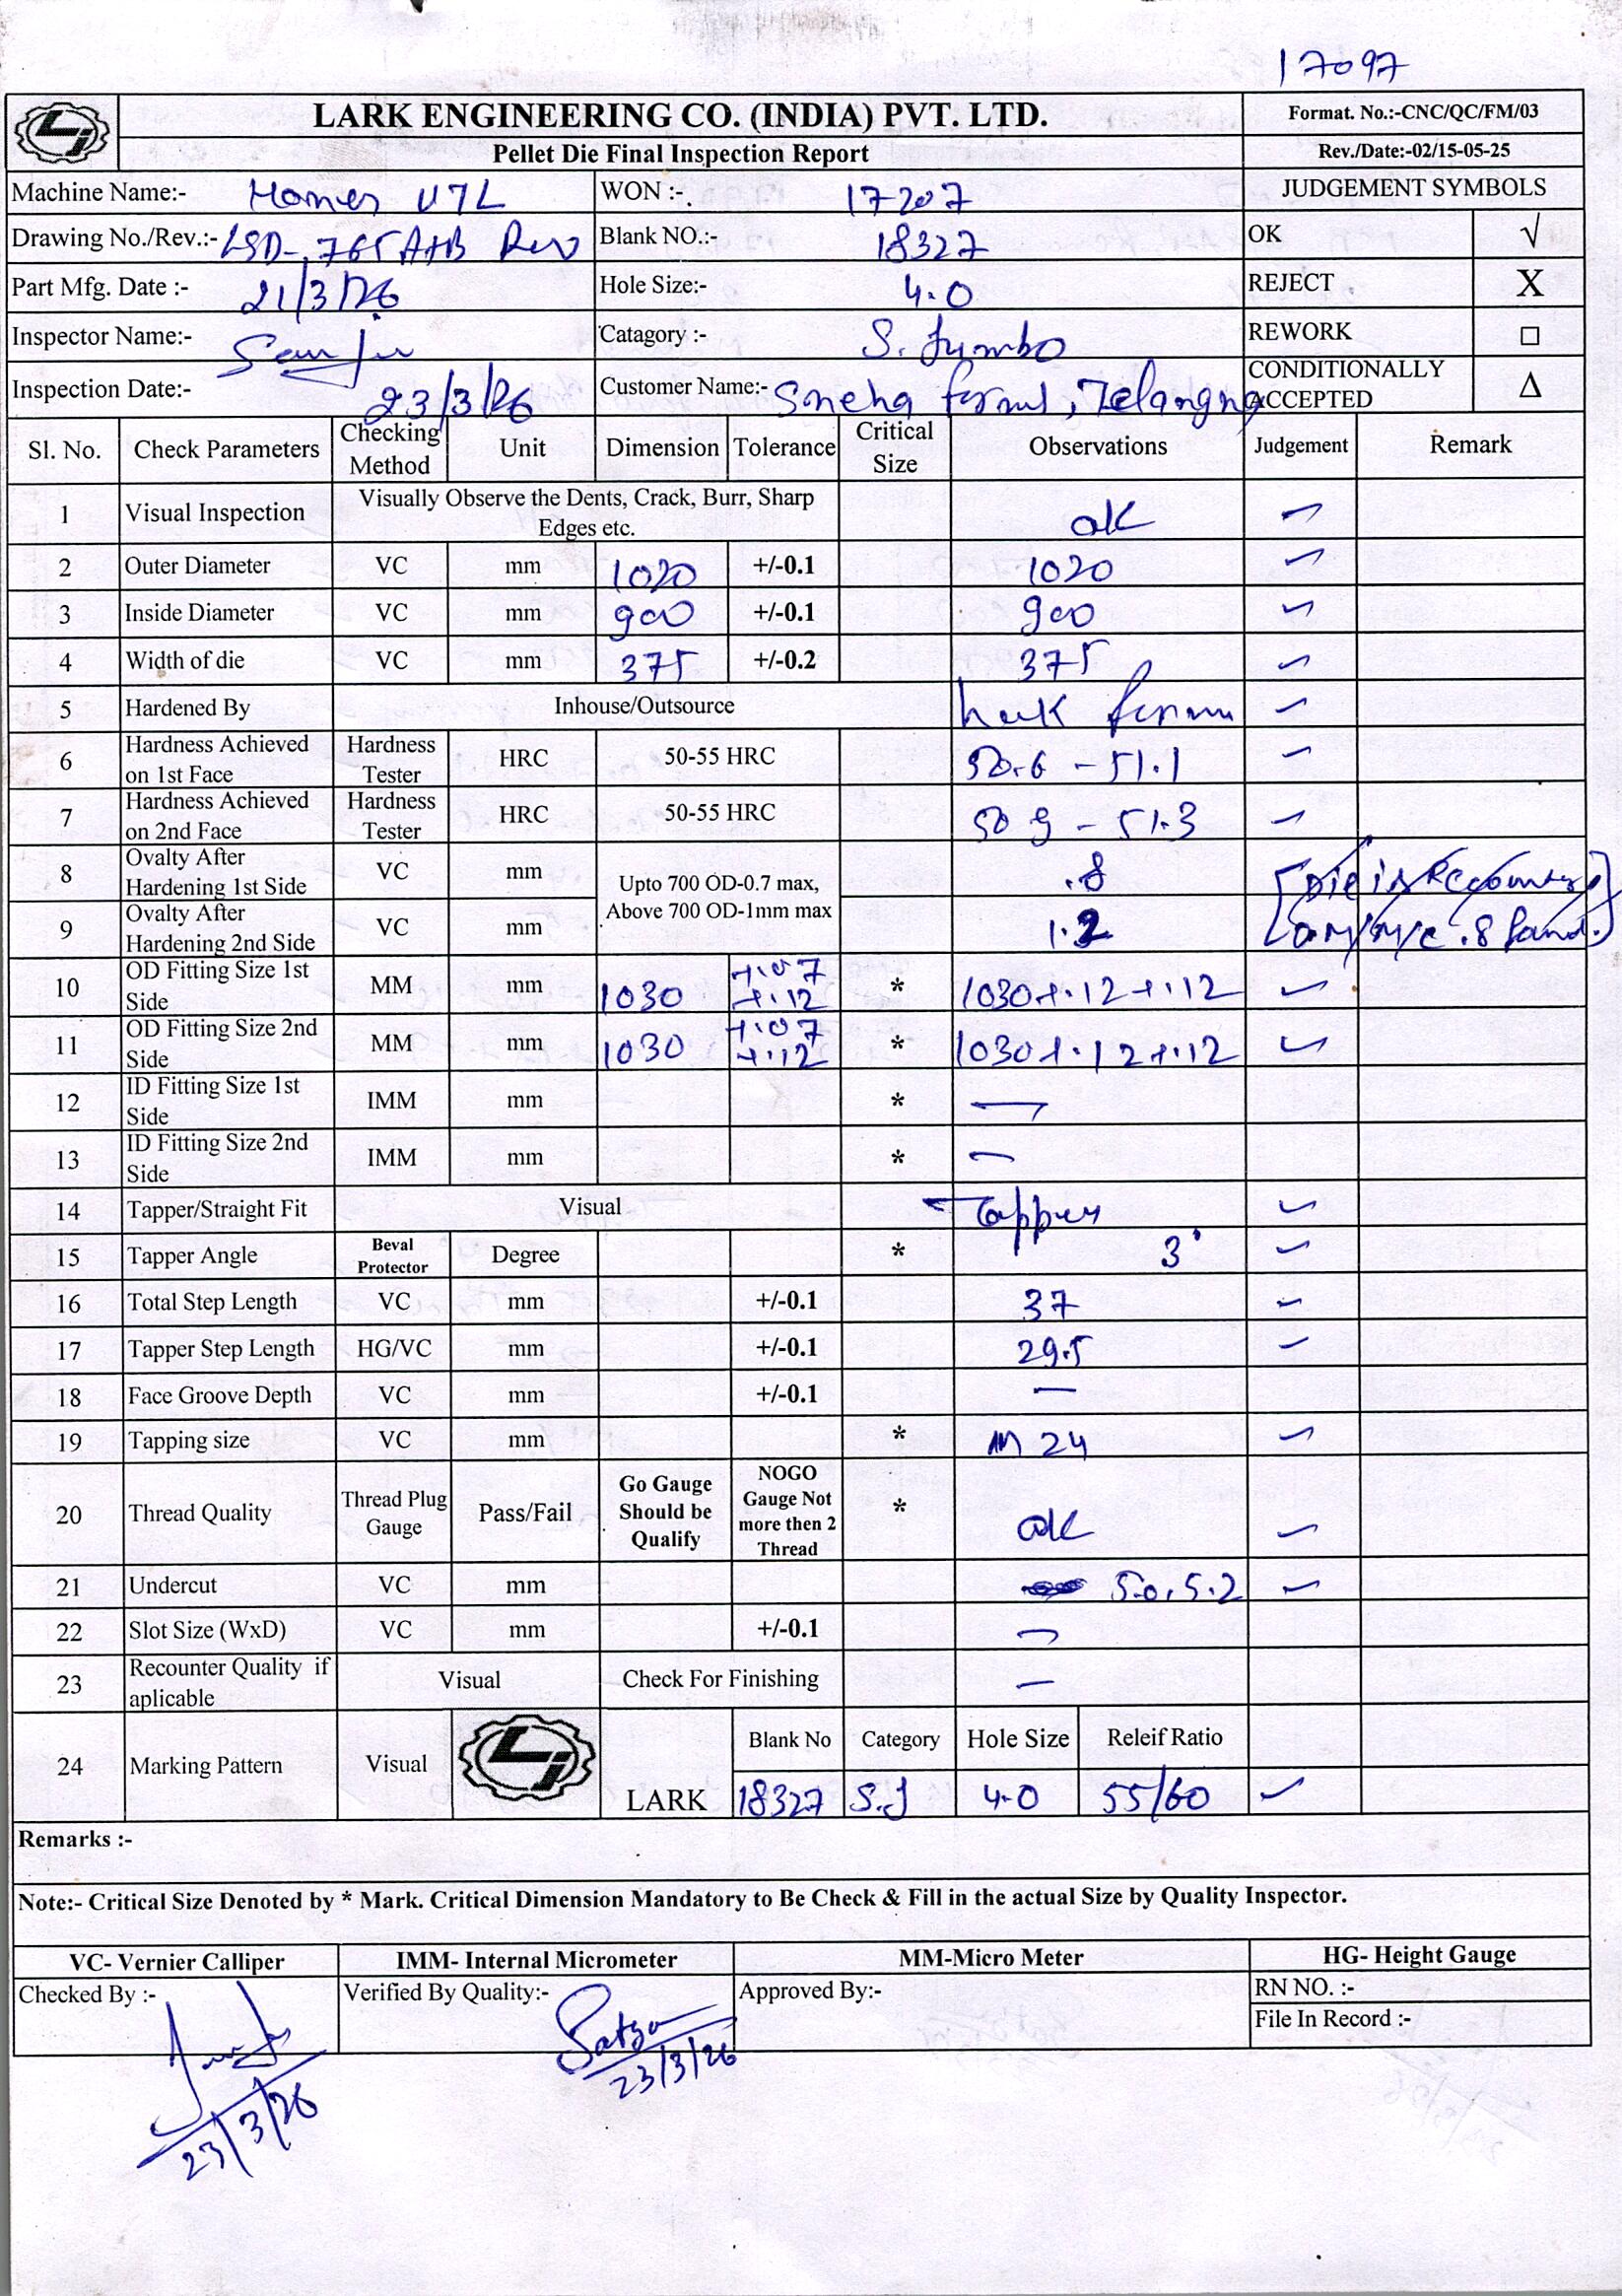 17097
LARK ENGINEERING CO. (INDIA) PVT. LTD.
Format. No.:-CNC/QC/FM/03
Pellet Die Final Inspection Report
Rev./Date:-02/15-05-25
Machine Name:- U7L WON :-. 17207 JUDGEMENT SYMBOLS
Drawing No./Rev.:- LSD-765 A+B Rev Blank NO.:- 18327 OK √
Part Mfg. Date :- 21/3/26 Hole Size:- 4.0 REJECT X
Inspector Name:- Catagory :- S. Jumbo REWORK □
Inspection Date:- 23/3/26 Customer Name:- Sneha farms, Telangna CONDITIONALLY ACCEPTED Δ
Sl. No. Check Parameters Checking Method Unit Dimension Tolerance Critical Size Observations Judgement Remark
1 Visual Inspection Visually Observe the Dents, Crack, Burr, Sharp Edges etc. ok ✓
2 Outer Diameter VC mm 1020 +/-0.1 1020 ✓
3 Inside Diameter VC mm 900 +/-0.1 900 ✓
4 Width of die VC mm 375 +/-0.2 375 ✓
5 Hardened By Inhouse/Outsource ✓
6 Hardness Achieved on 1st Face Hardness Tester HRC 50-55 HRC 50.6 - 51.1 ✓
7 Hardness Achieved on 2nd Face Hardness Tester HRC 50-55 HRC 50 9 - 51.3 ✓
8 Ovalty After Hardening 1st Side VC mm Upto 700 OD-0.7 max, Above 700 OD-1mm max .8 [Die is
9 Ovalty After Hardening 2nd Side VC mm 1.2 on M/C .8
10 OD Fitting Size 1st Side MM mm 1030 +.07 +.12 * 1030+.12+.12 ✓
11 OD Fitting Size 2nd Side MM mm 1030 +.07 +.12 * 1030+.12+.12 ✓
12 ID Fitting Size 1st Side IMM mm * —
13 ID Fitting Size 2nd Side IMM mm * —
14 Tapper/Straight Fit Visual Tapper ✓
15 Tapper Angle Beval Protector Degree * 3° ✓
16 Total Step Length VC mm +/-0.1 37 ✓
17 Tapper Step Length HG/VC mm +/-0.1 29.5 ✓
18 Face Groove Depth VC mm +/-0.1 —
19 Tapping size VC mm * M 24 ✓
20 Thread Quality Thread Plug Gauge Pass/Fail Go Gauge Should be Qualify NOGO Gauge Not more then 2 Thread * ok ✓
21 Undercut VC mm 5.0, 5.2 ✓
22 Slot Size (WxD) VC mm +/-0.1 —
23 Recounter Quality if aplicable Visual Check For Finishing —
24 Marking Pattern Visual LARK Blank No Category Hole Size Releif Ratio
18327 S.J 4.0 55/60 ✓
Remarks :-
Note:- Critical Size Denoted by * Mark. Critical Dimension Mandatory to Be Check & Fill in the actual Size by Quality Inspector.
VC- Vernier Calliper IMM- Internal Micrometer MM-Micro Meter HG- Height Gauge
Checked By :- Verified By Quality:- Satya Approved By:- RN NO. :-
File In Record :-
23/3/26
23/3/26